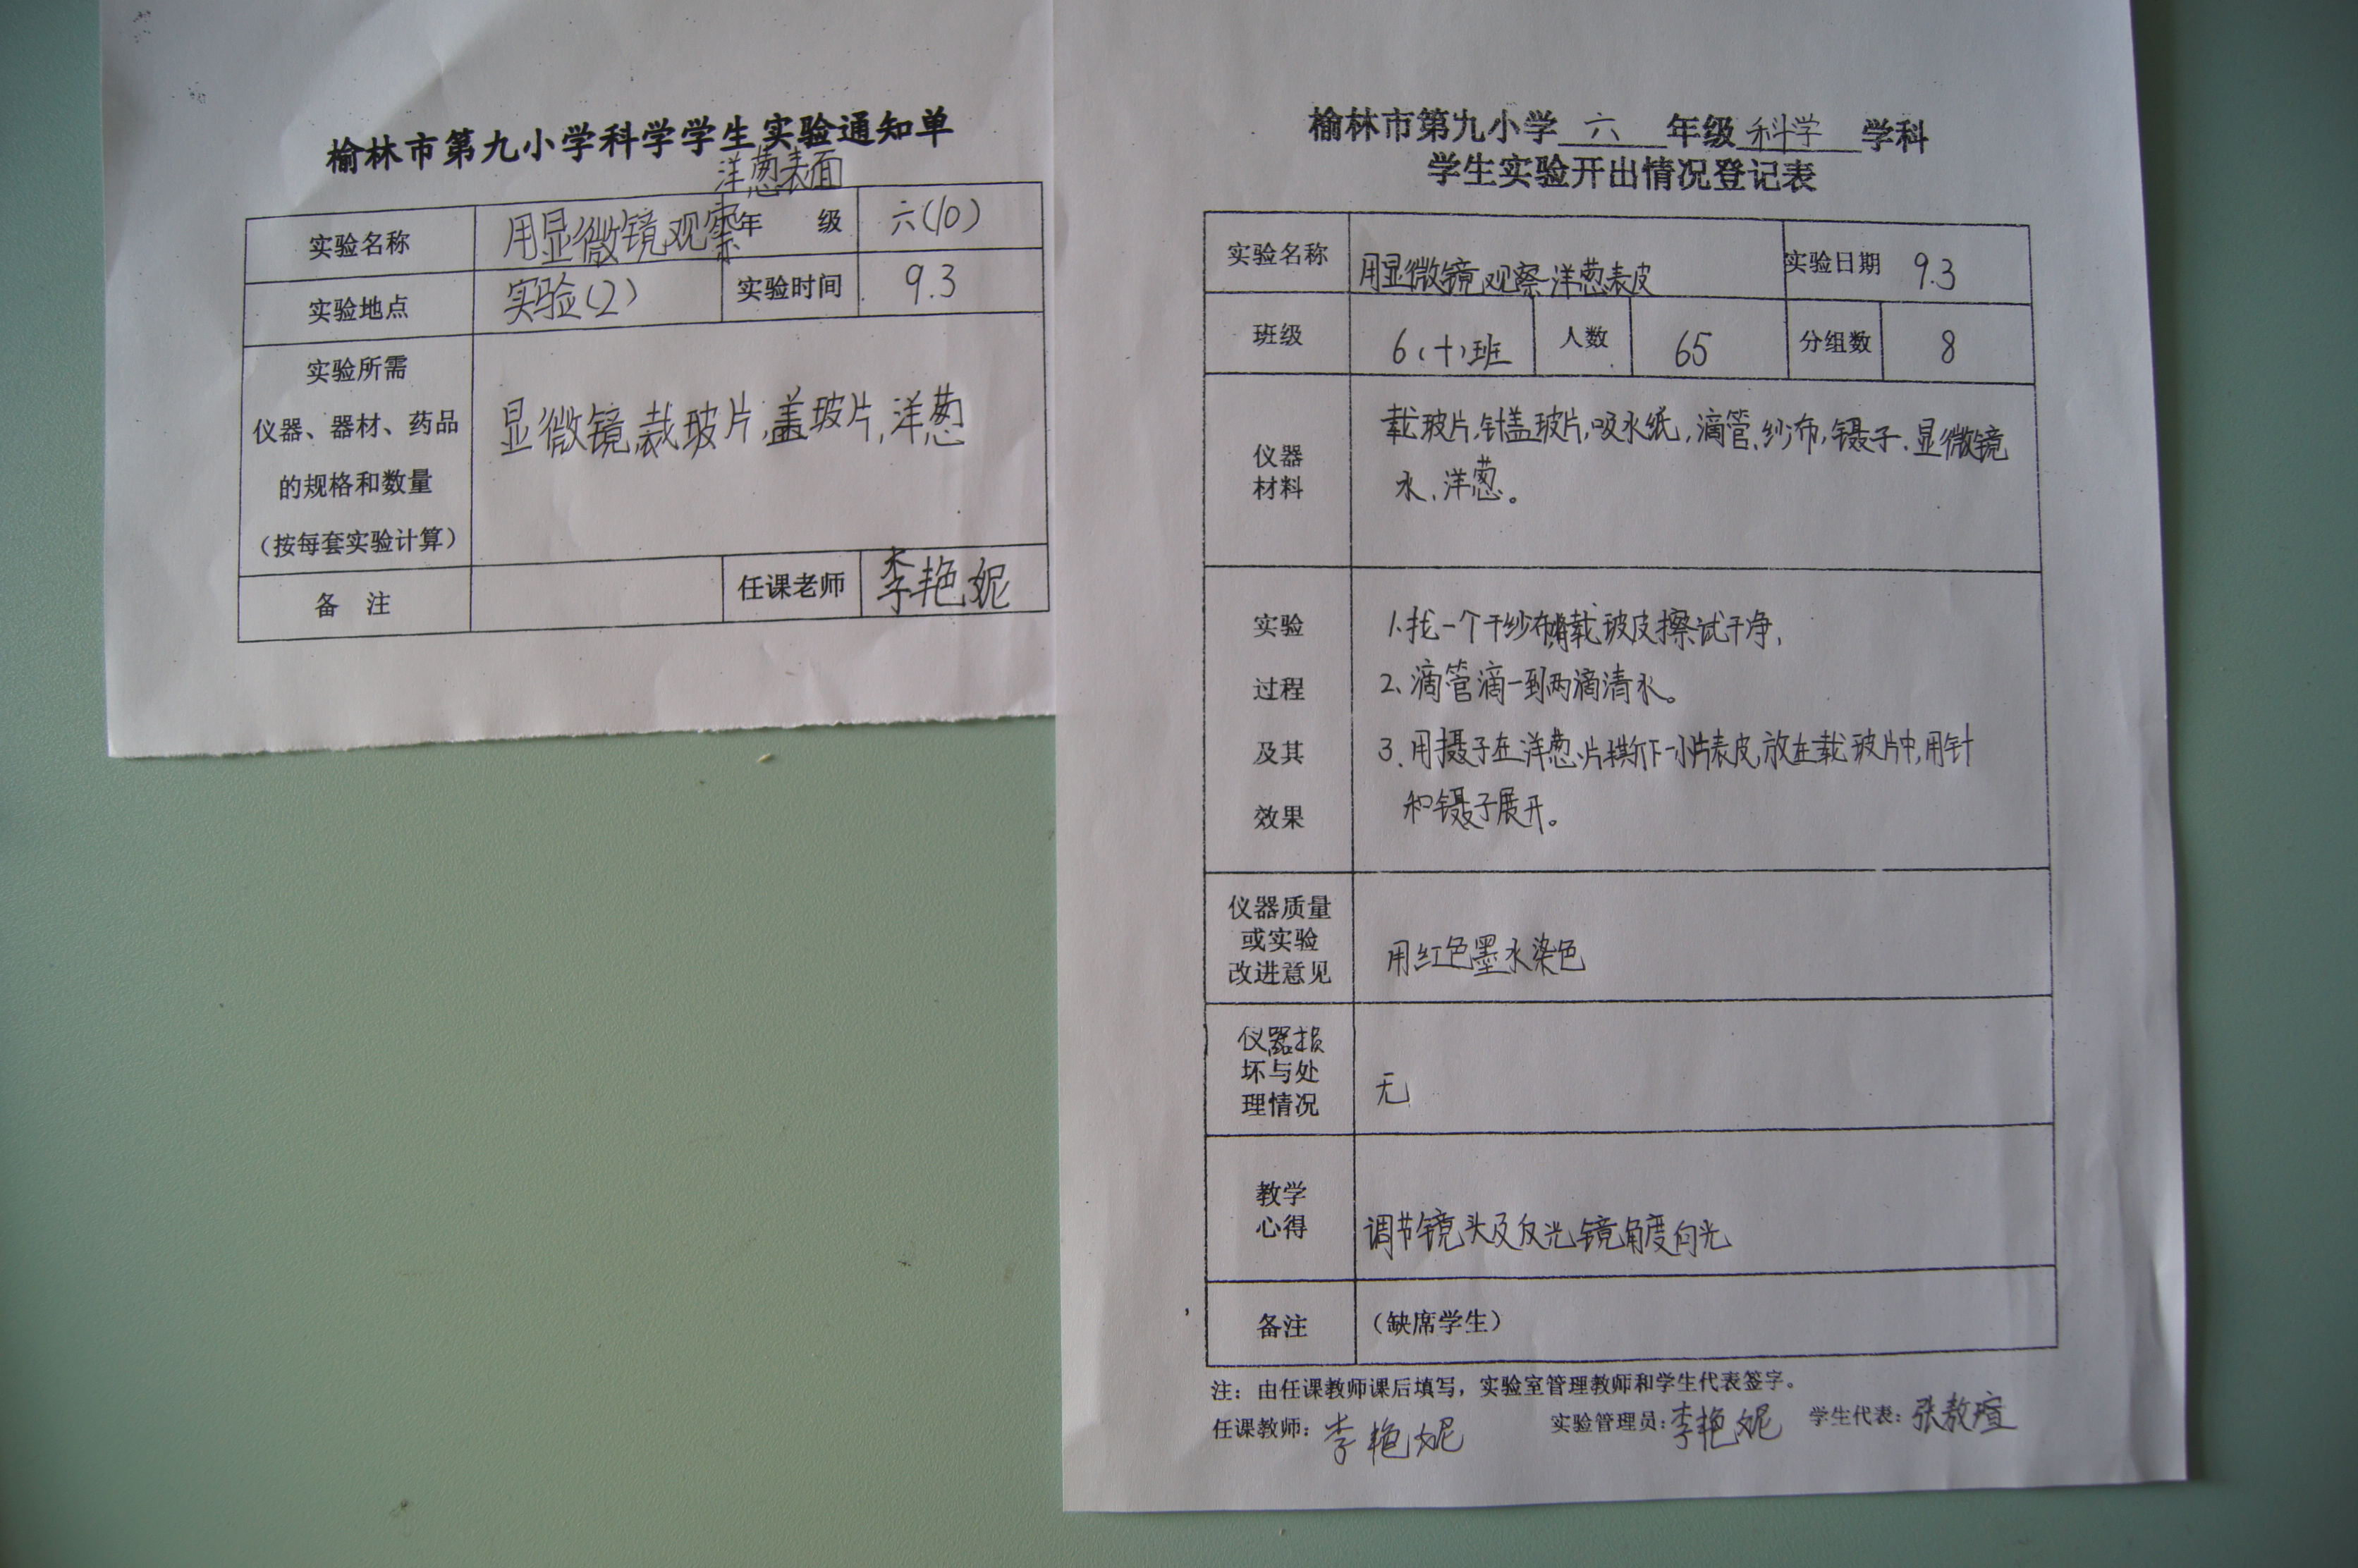 榆林市第九小学科学学生实验通知单
洋葱表面
实验名称 用显微镜观察 年 级 六(10)
实验地点 实验(2) 实验时间 9.3
实验所需
仪器、器材、药品
的规格和数量
(按每套实验计算)
显微镜,裁玻片,盖玻片,洋葱
备 注 任课老师 李艳妮
榆林市第九小学 六 年级 科学 学科
学生实验开出情况登记表
实验名称 用显微镜观察洋葱表皮 实验日期 9.3
班级 6(十)班 人数 65 分组数 8
仪器
材料
载玻片,针盖玻片,吸水纸,滴管,纱布,镊子.显微镜
水,洋葱。
实验
过程
及其
效果
1.找一个干纱布将载玻皮擦试干净,
2、滴管滴一到两滴清水。
3.用摄子在洋葱片撕下一小片表皮,放在载玻片中,用针
和镊子展开。
仪器质量
或实验
改进意见
用红色墨水染色
仪器损
坏与处
理情况
无
教学
心得
调节镜头及反光镜角度向光
备注 (缺席学生)
注:由任课教师课后填写,实验室管理教师和学生代表签字。
任课教师:李艳妮 实验管理员:李艳妮 学生代表:张敖瑄